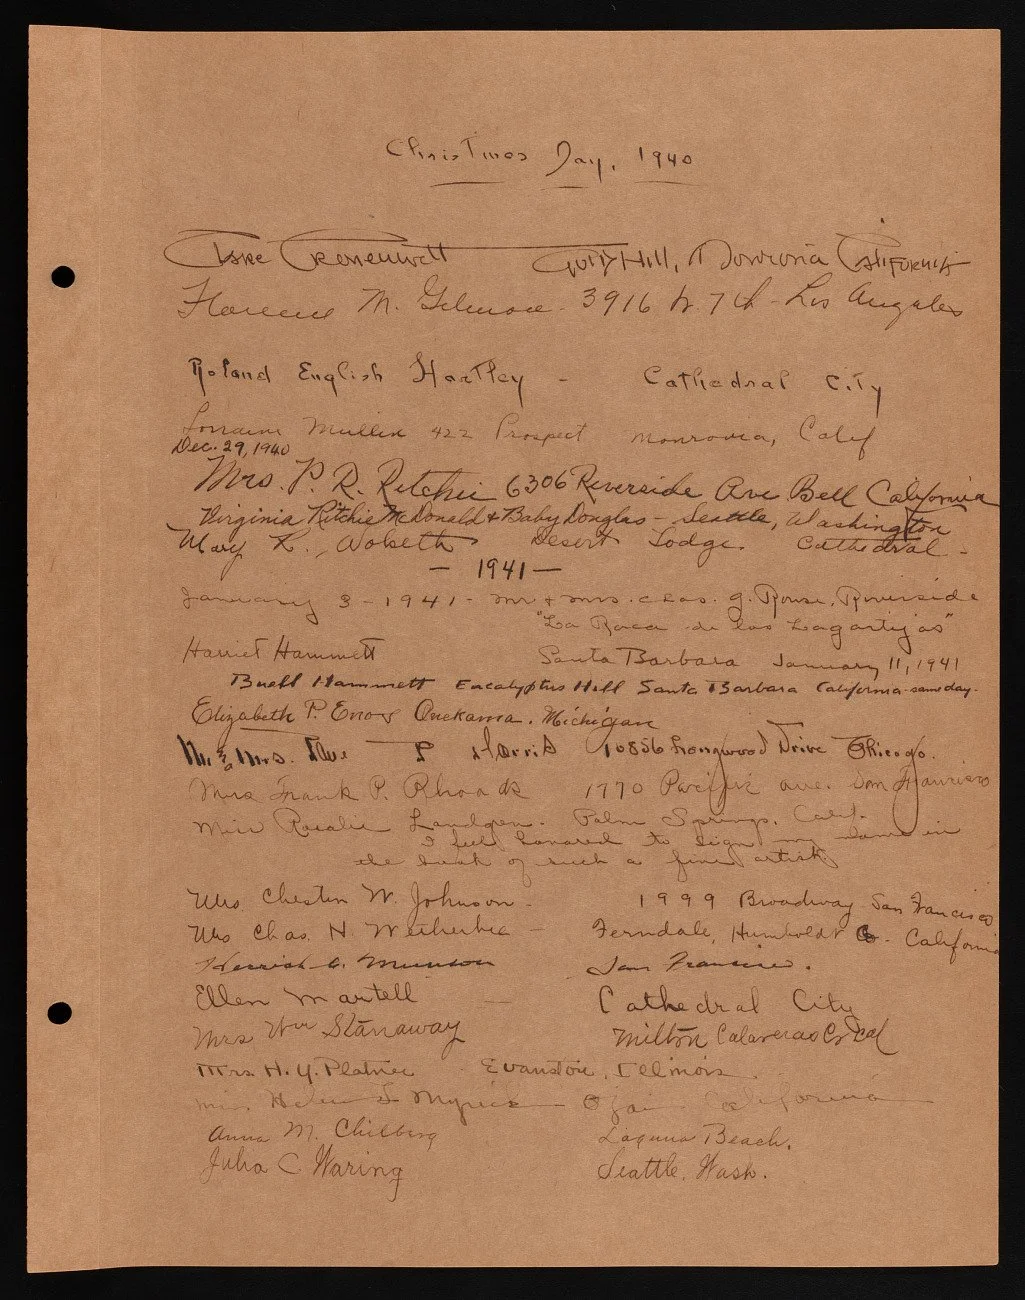 Christmas Day, 1940
Hill, Monrovia California
Florence M. Gilmore - 3916 W. 7th - Los Angeles
Roland English Hartley - Cathedral City
Lorraine Mullin 422 Prospect Monrovia, Calif
Dec. 29, 1940
Mrs. P. R. Ritchie 6306 Riverside Ave Bell California
Virginia Ritchie McDonald & Baby Douglas - Seattle, Washington
Mary K. Desert Lodge. Cathedral -
- 1941 -
January 3 - 1941 - Mr & Mrs. Chas. G. Rouse, Riverside
"La de los Lagartijas"
Harriet Hammett Santa Barbara January 11, 1941
Buell Hammett Eucalyptus Hill Santa Barbara California - same day.
Elizabeth P. Onekama, Michigan
Mr & Mrs. Harris 10856 Longwood Drive Chicago.
Mrs Frank P. Rhoads 1770 Pacific ave. San Francisco
Miss Rosalie Landgren. Palm Springs, Calif.
I feel honored to sign my name in
the book of such a fine artist
Mrs Chester W. Johnson - 1999 Broadway San Francisco
Mrs Chas. N. Wetherbee - Ferndale, Humboldt Co. California
Herrick C. Munson San Francisco.
Ellen Martell - Cathedral City
Mrs Wm Stanaway Milton Calaveras Co Cal
Mrs. H. Y. Platner Evanston, Illinois.
Helen Myrick - Ojai California
Anna M. Chilberg Laguna Beach.
Julia C Waring Seattle, Wash.